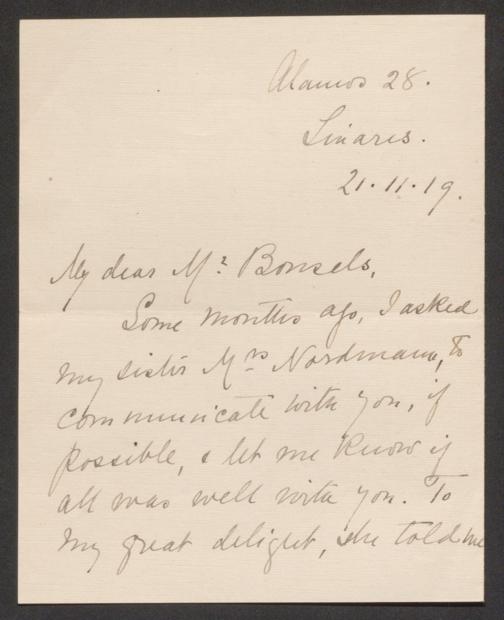 Alamos 28.
Linares.
21.11.19.
My dear Mr Bonsels,
Some months ago, I asked
my sister Mrs Nordmann, to
communicate with you, if
possible, & let me know if
all was well with you. To
my great delight, she told me